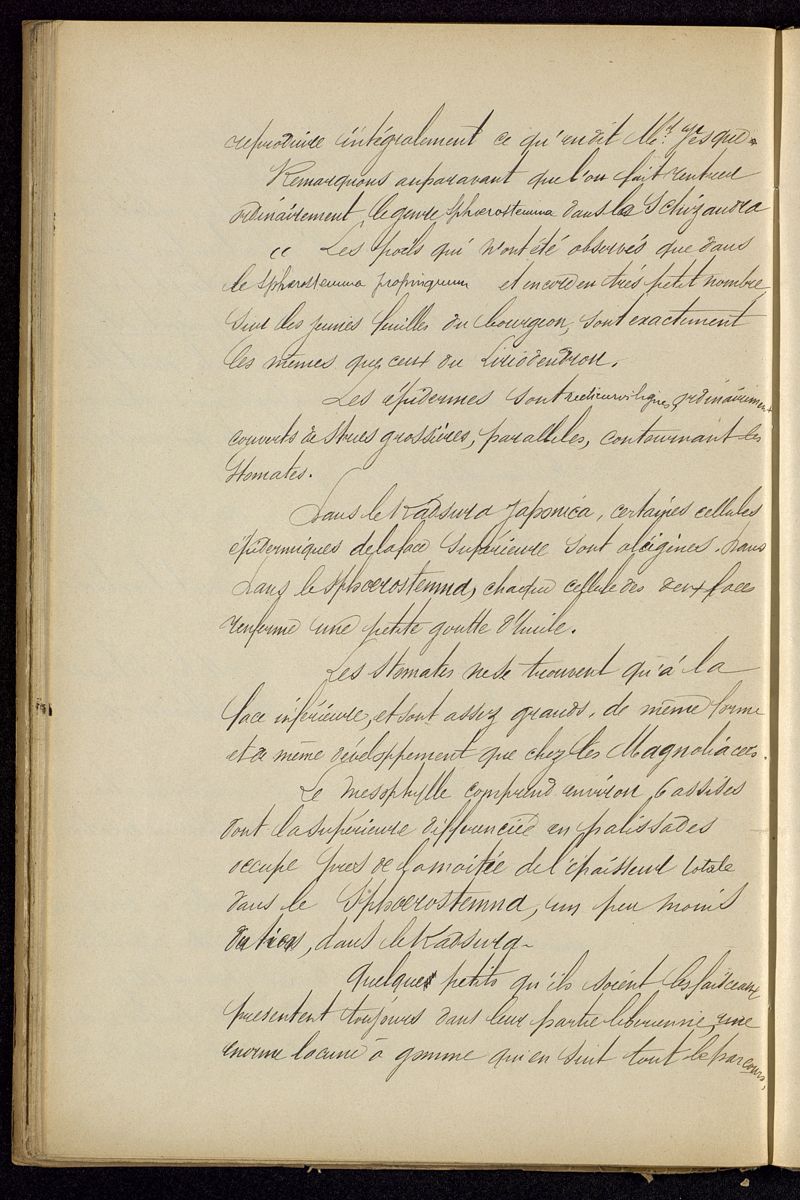 reproduire intégralement ce qu'en dit Mr. Vesque.
Remarquons auparavant que l'on fait rentrer
ordinairement le genre Sphœrostemma dans le Schizandra
" Les poils qui n'ont été observés que dans
le Sphœrostemma propinquum et encore en très petit nombre,
sur les jeunes feuilles du bourgeon, sont exactement
les mêmes que ceux du Liriodendron.
Les épidermes sont rectiurvilignes, ordinairement
couverts de stries grossières, parallèles, contournant les
stomates.
Dans le Kadsura Japonica, certaines cellules
épidermiques de la face supérieure sont oléigènes. Dans
Dans le Sphœrostemma, chaque cellule des deux faces
renferme une petite goutte d'huile.
Les stomates ne se trouvent qu'à la
face inférieure, et sont assez grands, de même forme
et de même développement que chez les Magnoliacées.
Le mésophylle comprend environ 6 assises
dont la supérieure différenciée en palissades
occupe près de la moitié de l'épaisseur totale
dans le Sphœrostemma, un peu moins
du tiers, dans le Kadsura.
Quelques petits qu'ils soient les faisceaux
présentent toujours dans leur partie libérienne une
énorme lacune à gomme qui en suit tout le parcours,